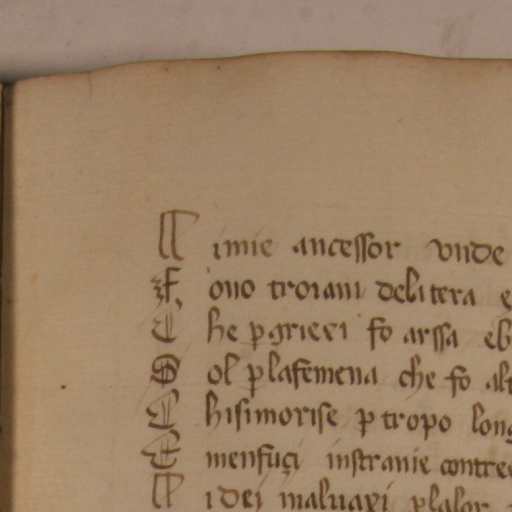 A imie ancessor vnde
F ono troiani dela tera e
C he p griexi fo arssa eb
S ol p lafemena che fo alt
C hisimorise p tropo long
E menfuçi instranie contree
A i dei maluaxi p lalor